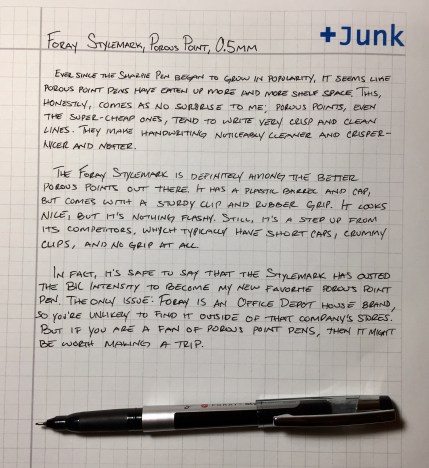 +Junk
Foray Stylemark, Porous Point, 0.5mm
Ever since the Sharpie Pen began to grow in popularity, it seems like
porous point pens have eaten up more and more shelf space. This,
honestly, comes as no surprise to me; porous points, even
the super-cheap ones, tend to write very crisp and clean
lines. They make handwriting noticeably cleaner and crisper-
nicer and neater.
The Foray Stylemark is definitely among the better
porous points out there. It has a plastic barrel and cap,
but comes with a sturdy clip and rubber grip. It looks
nice, but it's nothing flashy. Still, it's a step up from
its competitors, which typically have short caps, crummy
clips, and no grip at all.
In fact, it's safe to say that the Stylemark has ousted
the Bic Intensity to become my new favorite porous point
pen. The only issue: Foray is an Office Depot house brand,
so you're unlikely to find it outside of that company's stores.
But if you are a fan of porous point pens, then it might
be worth making a trip.